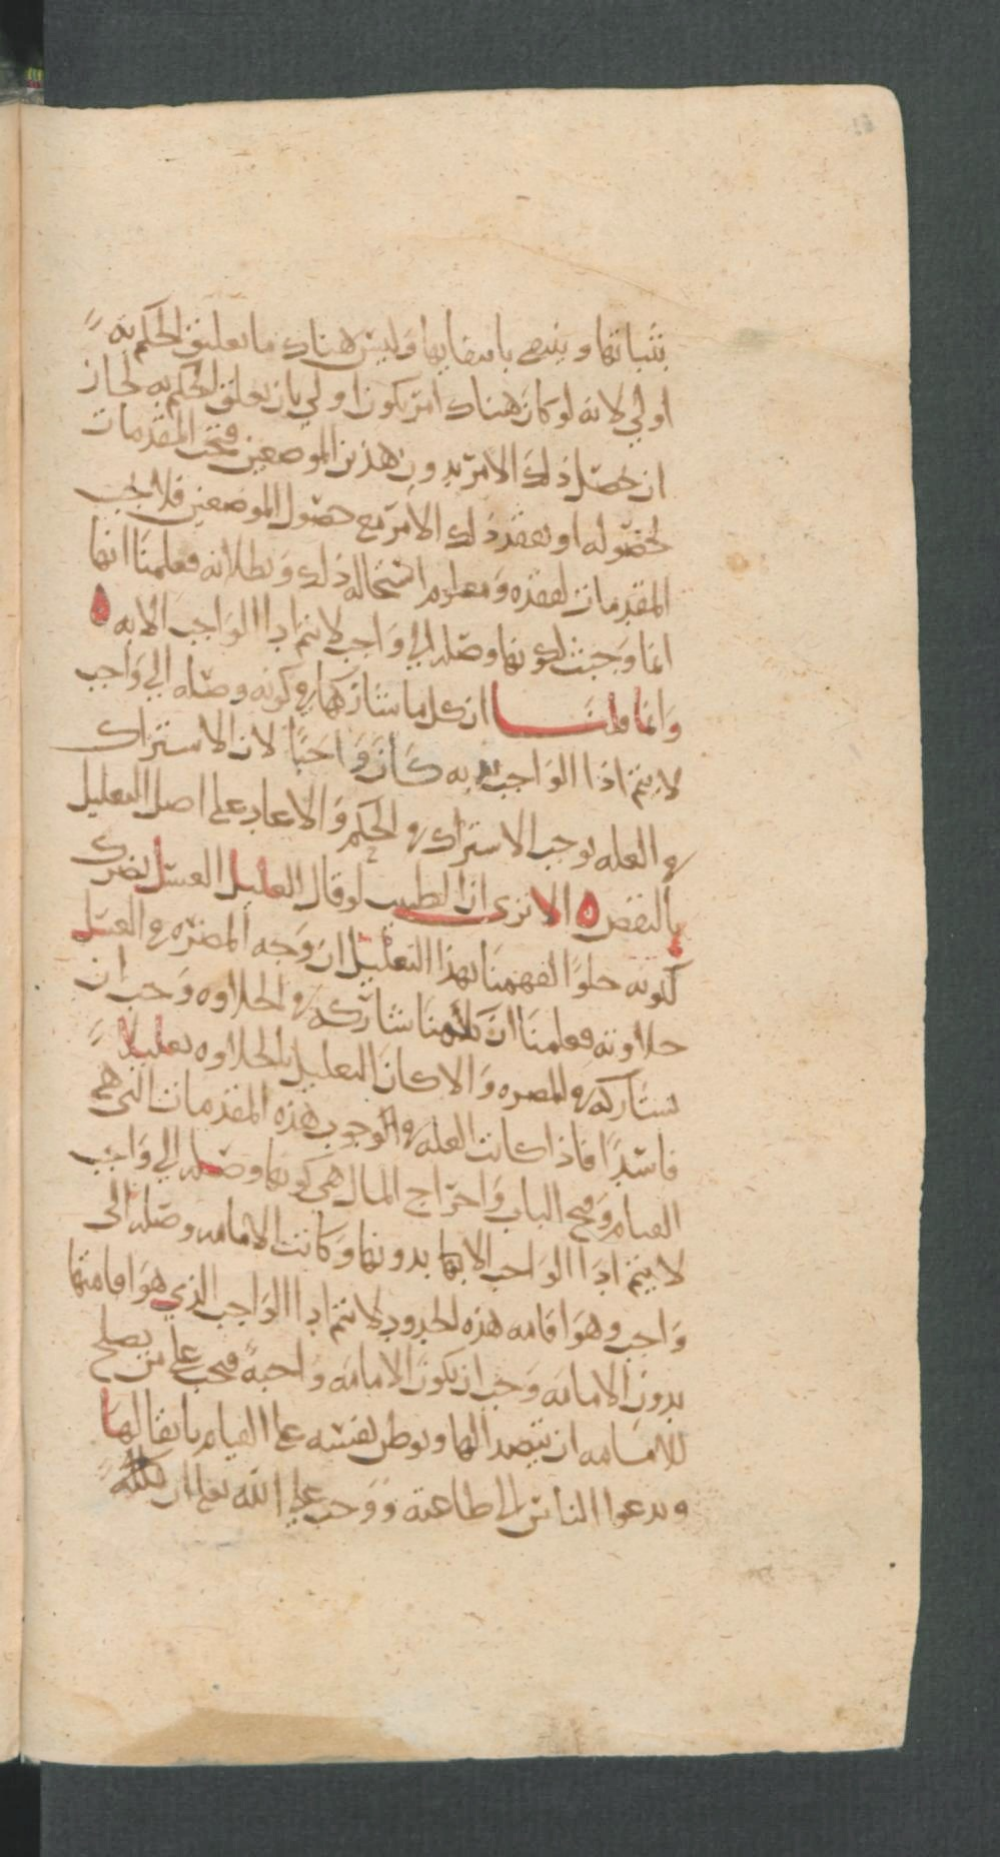 بثباتها وينتفي بانتفايها وليس هناك ما تعليق الحكم به
اولى لانه لو كان هناك امر يكون اولى بان تعلق الحكم به لجاز
ان يحصل ذلك الامر بدون هذين الموضعين فتجب المقدمات
لحصوله او يفقد ذلك الامر مع حصول الموضعين فلا تجب
المقدمات لفقده ومعلوم استحالة ذلك وبطلانه فعلمنا انها
انما وجبت لكونها وصله الى واجب لا يتم اداا الواجب الا به ه
وانما قلنا ان كل ما شاركها في كونه وصله الى واجب
لا يتم اداا الواجب به كان واجبا لان الاشتراك
في العله يوجب الاشتراك في الحكم والا عاد على اصل التعليل
بالنقض ه الا ترى ان الطبيب لو قال العليل العسل يضرك
لكونه حلوا لفهمنا بهذا التعليل ان وجه المضره في العسل
حلاوته فعلمنا ان شاركه في الحلاوه وجب ان
يشاركه في المضره والا كان التعليل بالحلاوه تعليلا
فاسدا فاذا كانت العله في الوجوب هذه المقدمات التي هي
القيام وفتح الباب واخراج المال هي كونها وصله الى واجب
لا يتم اداا الواجب الا بها بدونها وكانت الامامه وصله الى
واجب وهو اقامه هذه الحدود لا يتم اداا الواجب الذي هو اقامتها
بدون الامامه وجب ان يكون الامامه واجبه فيجب على من يصلح
للامامه ان يتصدا لها ويوطن نفسه على القيام باثقالها
ويدعوا الناس الى طاعته ووجب على الله تعلى ان